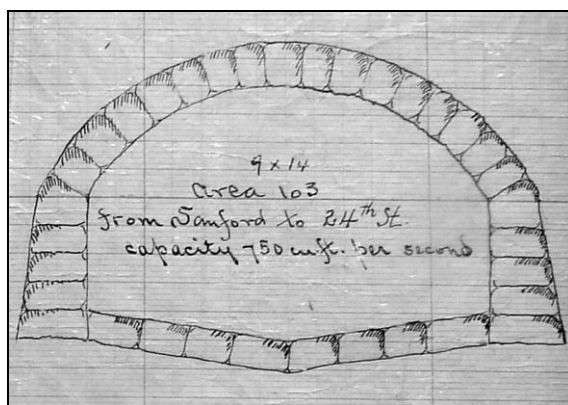 9 x 14
area 103
from Sanford to 24th St.
capacity 750 cu ft. per second